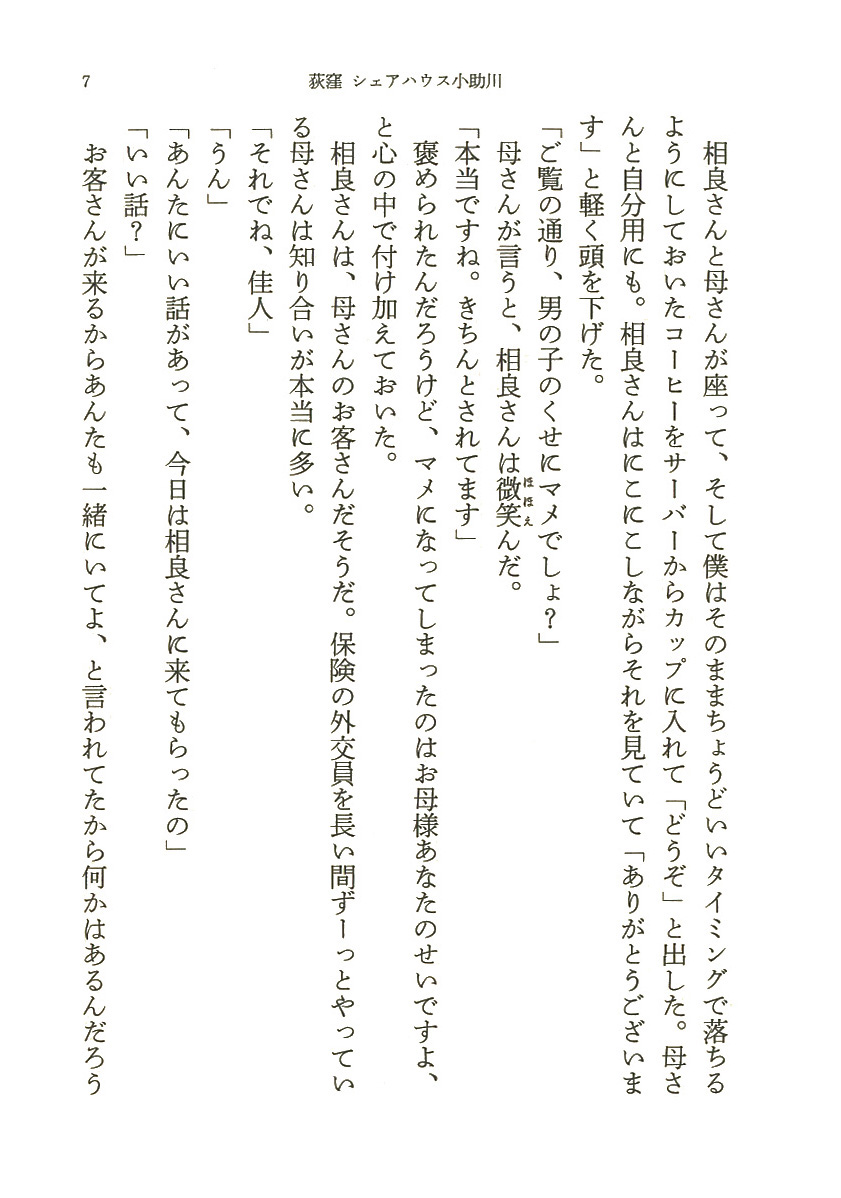 7
荻窪 シェアハウス小助川
　相良さんと母さんが座って、そして僕はそのままちょうどいいタイミングで落ちる
ようにしておいたコーヒーをサーバーからカップに入れて「どうぞ」と出した。母さ
んと自分用にも。相良さんはにこにこしながらそれを見ていて「ありがとうございま
す」と軽く頭を下げた。
「ご覧の通り、男の子のくせにマメでしょ？」
　母さんが言うと、相良さんは微笑ほほえんだ。
「本当ですね。きちんとされてます」
　褒められたんだろうけど、マメになってしまったのはお母様あなたのせいですよ、
と心の中で付け加えておいた。
　相良さんは、母さんのお客さんだそうだ。保険の外交員を長い間ずーっとやってい
る母さんは知り合いが本当に多い。
「それでね、佳人」
「うん」
「あんたにいい話があって、今日は相良さんに来てもらったの」
「いい話？」
　お客さんが来るからあんたも一緒にいてよ、と言われてたから何かはあるんだろう